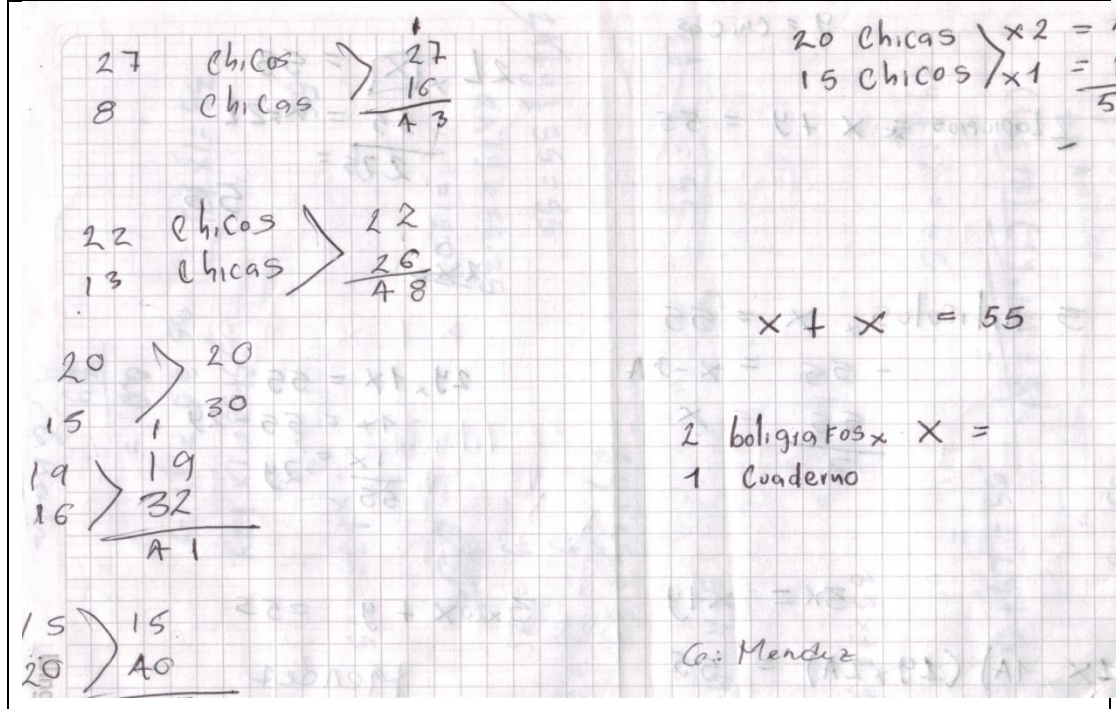 27 chicos 27
8 chicas 16
43
22 chicos 22
13 chicas 26
48
20 20
15 30
1
19 19
16 32
41
15 15
20 40
20 chicas x2 =
15 chicos x1 =
5
x + x = 55
2 boligrafos x X =
1 Cuaderno
G: Mendez